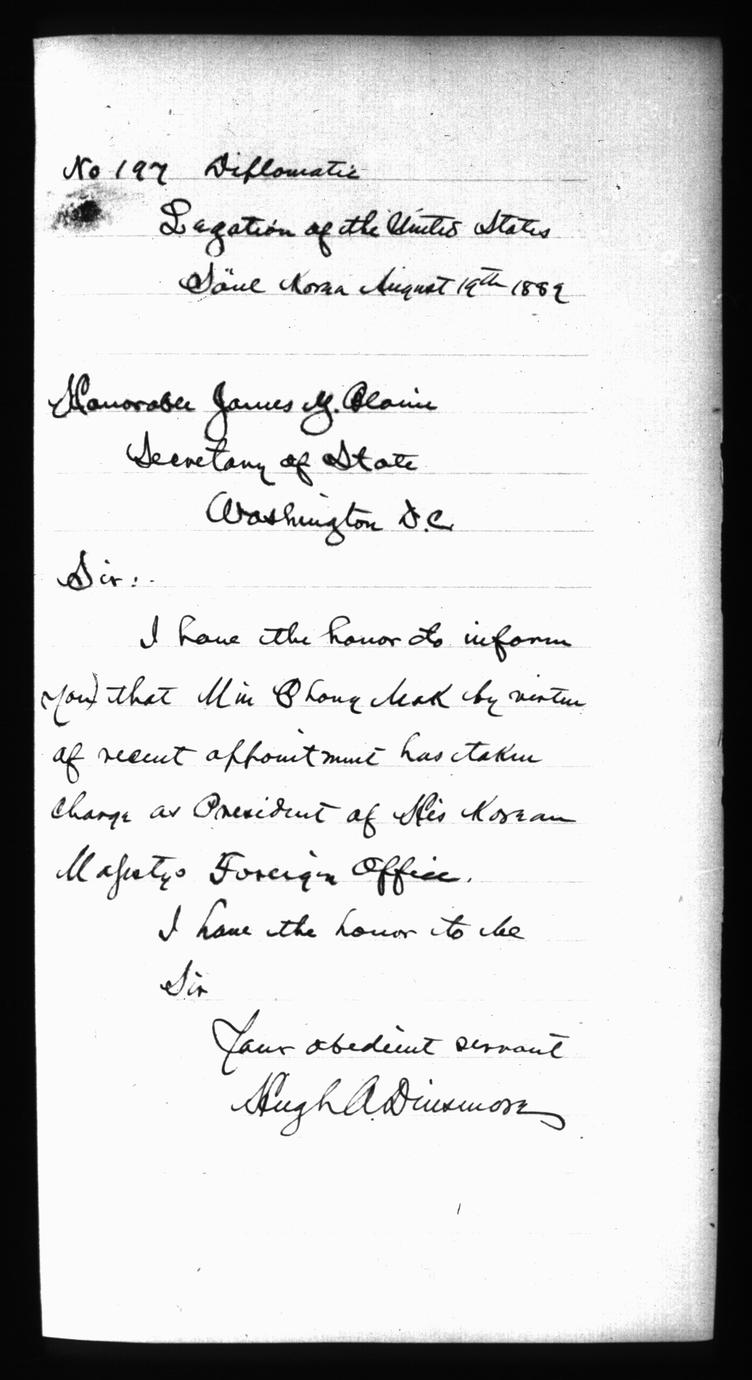 No 197 Diplomatic
Legation of the United States
Söul Korea August 19th 1889
Honorable James G. Blaine
Secretary of State
Washington D.C.
Sir:
I have the honor to inform
you that Min Chong Mok by virtue
of recent appointment has taken
charge as President of His Korean
Majestys Foreign Office.
I have the honor to be
Sir
Your obedient servant
Hugh A. Dinsmore